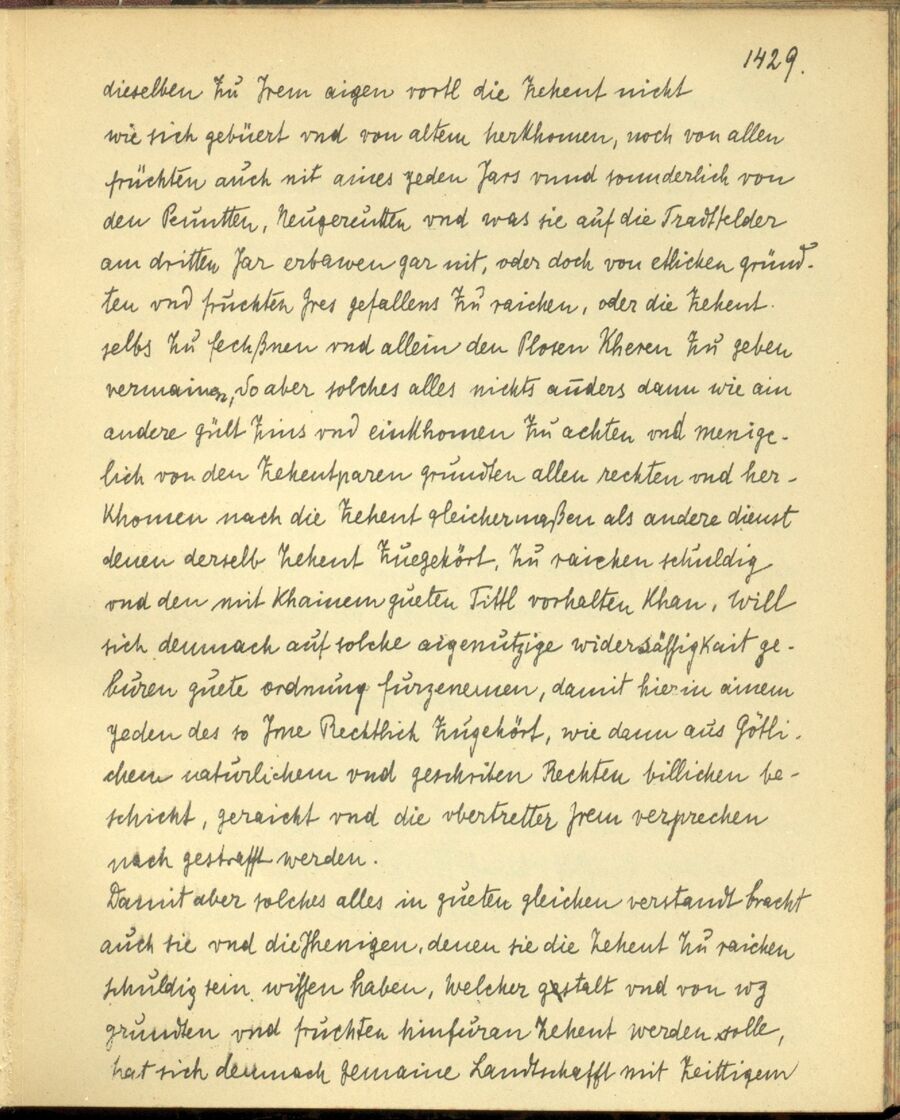 1429.
dieselben Zu Irem aigen vortl die Zehent nicht
wie sich gebüert vnd von altem herkhomen, noch von allen
früchten auch nit aines yeden Jars vnnd sonnderlich von
den Peuntten, Neugereutten vnd was sie auf die Tradtfelder
am dritten Jar erbawen gar nit, oder doch von etlichen gründ-
ten vnd fruchten Ires gefallens Zu raichen, oder die Zehent
selbs Zu fechßnen vnd allein den Plosen Kheren Zu geben
vermainen, So aber solches alles nichts anders dann wie ain
andere gült Zins vnd einkhomen Zu achten vnd menige-
lich von den Zehentparen grundten allen rechten vnd her-
khomen nach die Zehent gleichermaßen als andere dienst
denen derselb Zehent Zuegehört, Zu raichen schuldig
vnd den mit khainem gueten Tittl vorhalten khan, will
sich demnach auf solche aigenutzige widersässigkait ge-
buren guete ordnung furzenemen, damit hierin ainem
yeden des so Ime Rechtlich Zugehört, wie dann aus Götli-
chem naturlichem vnd geschriten Rechten billichen be-
schicht, geraicht vnd die vbertretter Irem verprechen
nach gestrafft werden.
Damit aber solches alles in gueten gleichen verstandt bracht
auch sie vnd die Jhenigen, denen sie die Zehent Zu raichen
schuldig sein wissen haben, welcher gestalt vnd von wz
grundten vnd fruchten hinfuran Zehent werden solle,
hat sich demnach gemaine Landtschafft mit Zeittigem